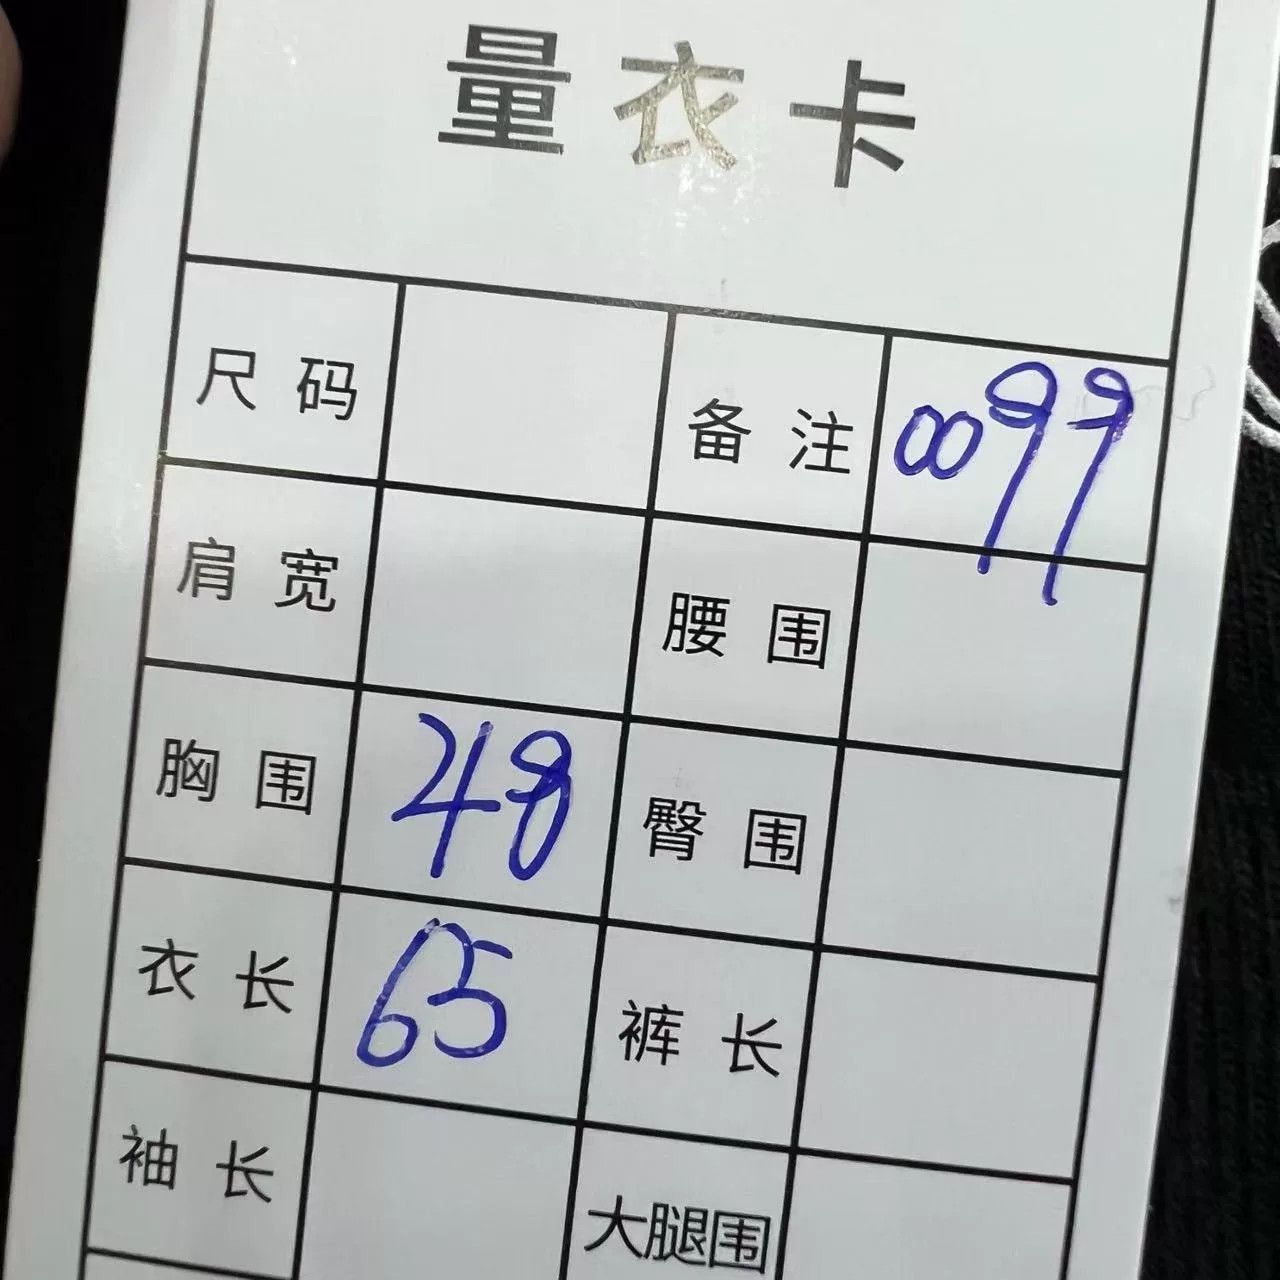 量衣卡
尺码 备注 0099
肩宽 腰围
胸围 48 臀围
衣长 65 裤长
袖长 大腿围